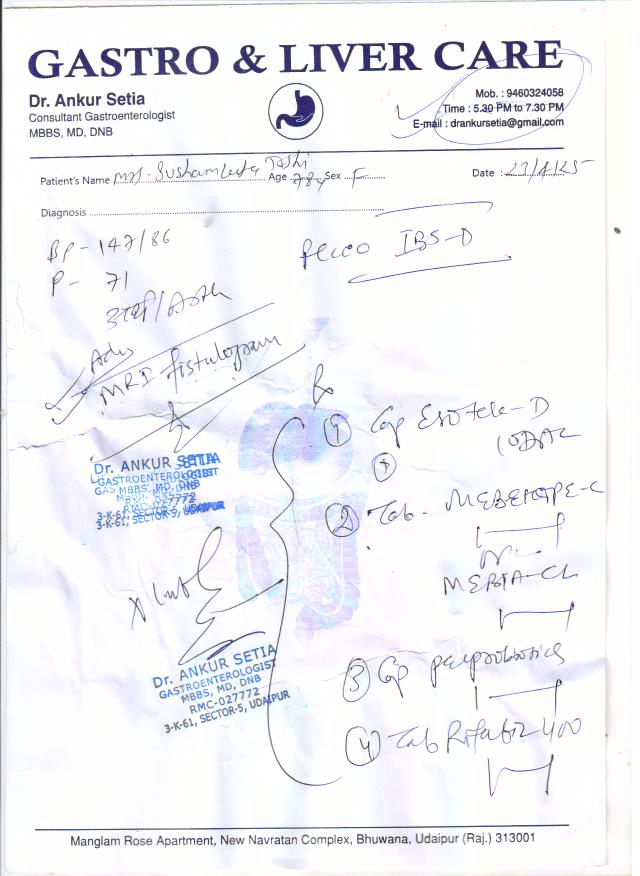 GASTRO & LIVER CARE
Dr. Ankur Setia
Consultant Gastroenterologist
MBBS, MD, DNB
Mob. : 9460324058
Time : 5.30 PM to 7.30 PM
E-mail : drankursetia@gmail.com
Patient's Name Mrs. Sushamlata Joshi Age 78y Sex F
Date : 23/4/25
Diagnosis
BP - 147/86
P - 71
IBS-D
Adv
MRI fistulogram
Rx
① Cap Esotela-D
10DAC
+
② Tab - MEBETOPE-C
or
MEBTA-CL
③ Cap
④ Tab Rifabiz 400
Dr. ANKUR SETIA
GASTROENTEROLOGIST
MBBS, MD, DNB
RMC-027772
3-K-61, SECTOR-5, UDAIPUR
Dr. ANKUR SETIA
GASTROENTEROLOGIST
MBBS, MD, DNB
RMC-027772
3-K-61, SECTOR-5, UDAIPUR
Manglam Rose Apartment, New Navratan Complex, Bhuwana, Udaipur (Raj.) 313001